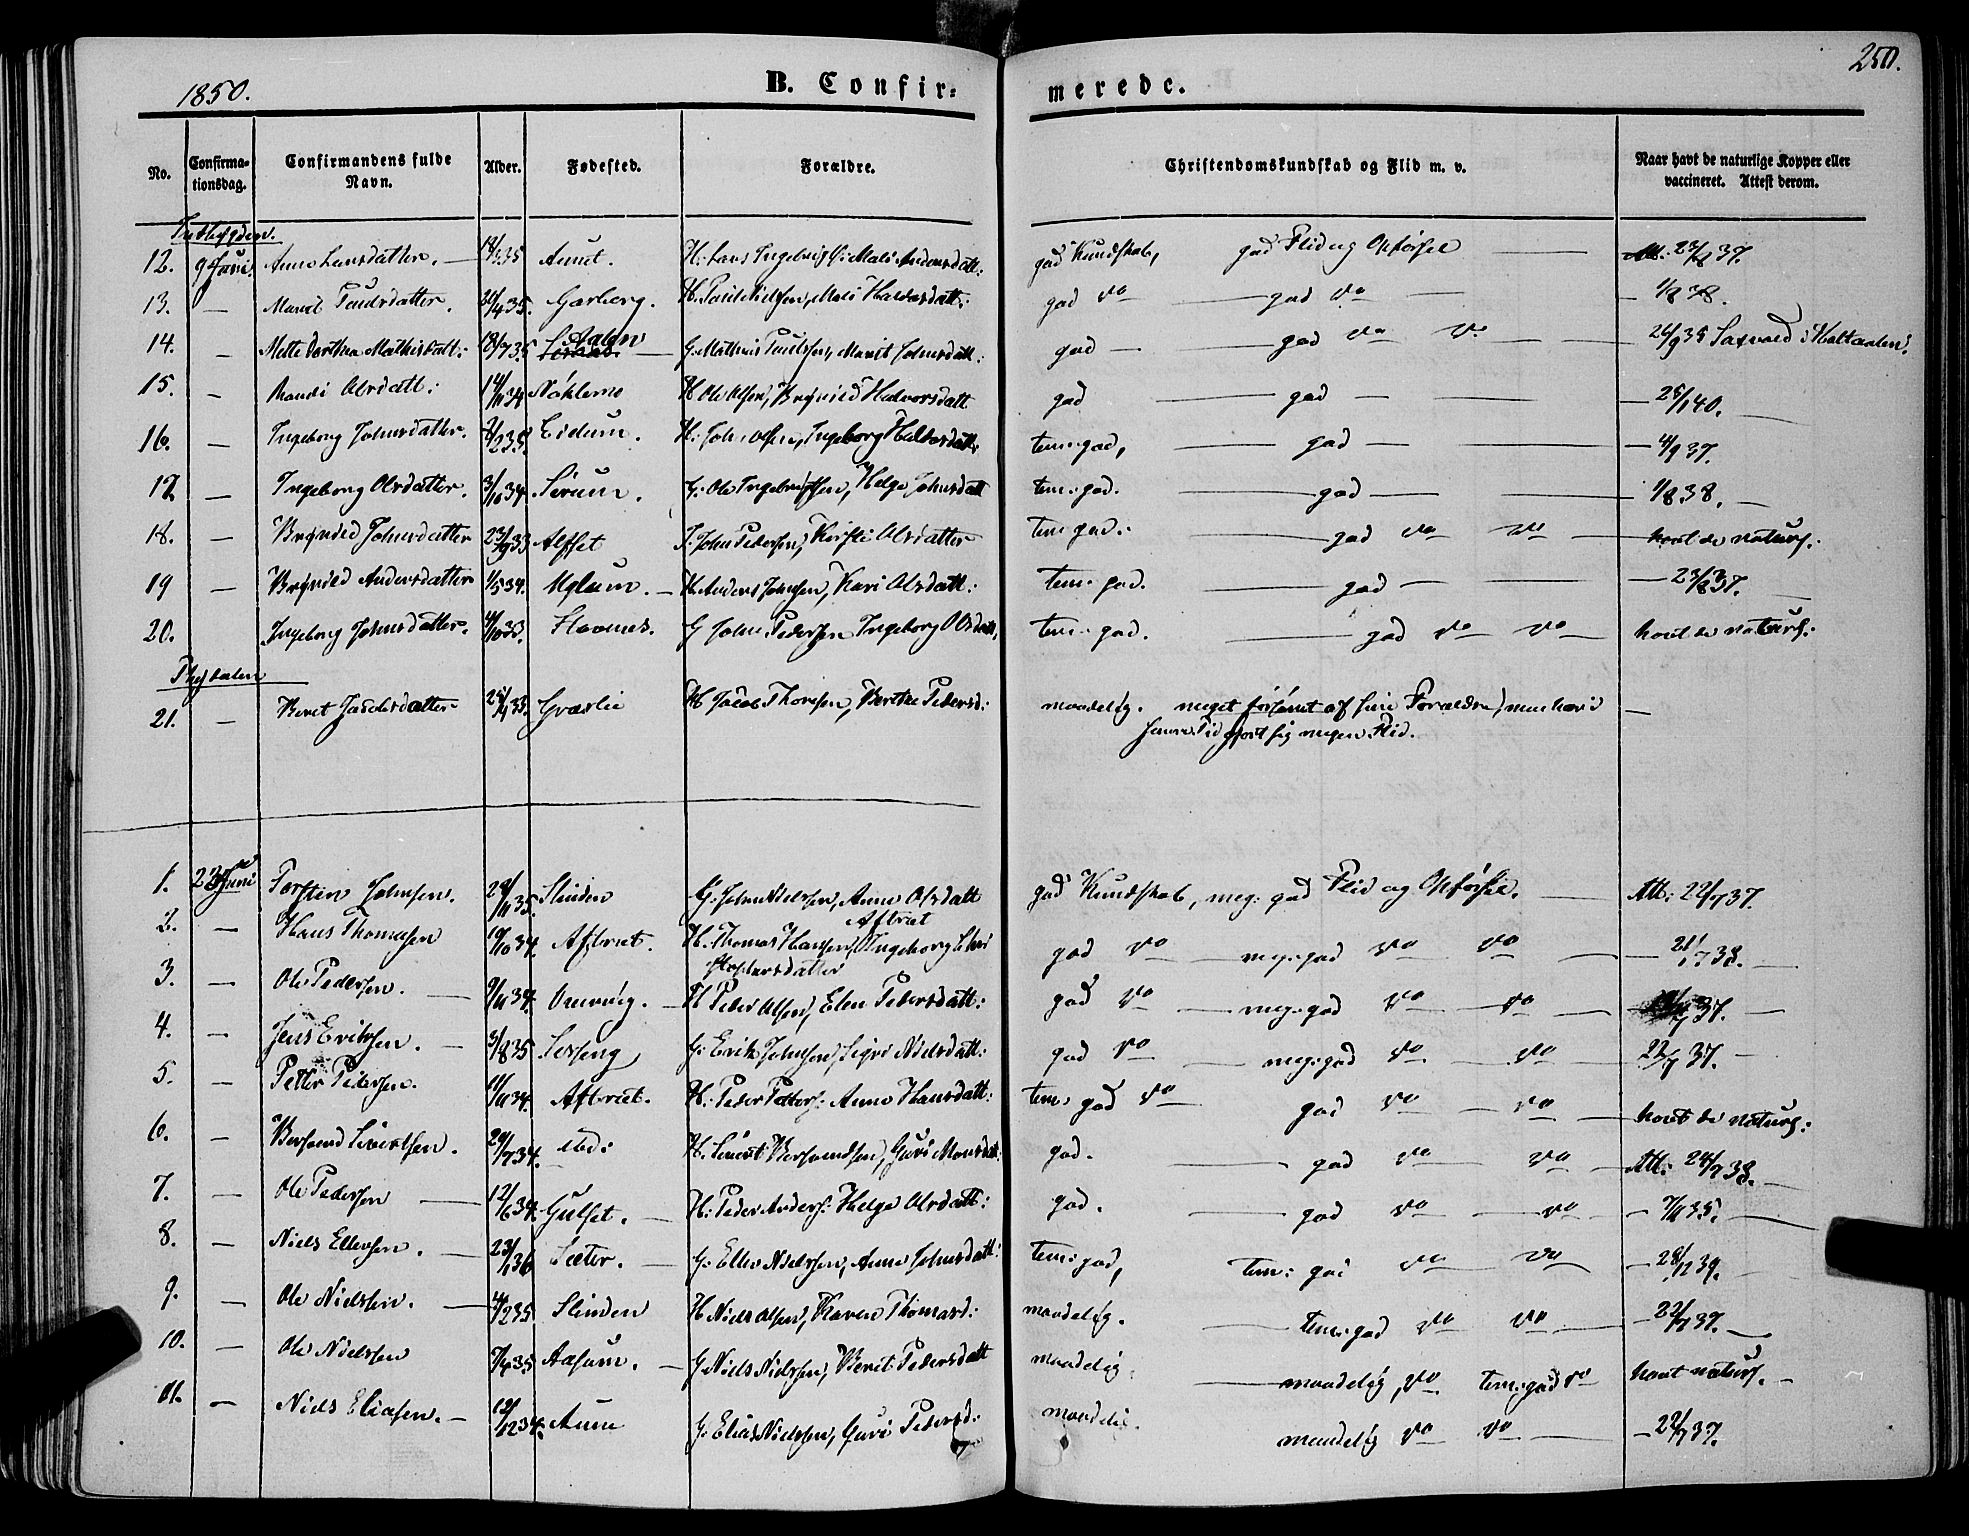 1850.
B. Confir-
merede.
250.
No. Confirmationsdag. Confirmandens fulde Navn. Alder. Fødested. Forældre. Christendomskundskab og Flid m. v. Naar havt de naturlige Kopper eller vaccineret. Attest derom.
12. 9 Juni Anne Larsdatter. Aunet. gad Kundskab, gad Flid og Opførsel Att: 23/8 37.
13. — Marit Paulsdatter. 30/4 35. Garberg. H. Paul Nielsen, Mali Haldorsdatt: gad do gad do
14. — Mette Dorthea Mathisdatt: 18/7 35 Aalen G. Mathias Paulsen, Marit Johnsdatt: gad gad do do 26/9 35 i Holtaalen.
15. — Randi Olsdatt: 14/11 34 H Ole Olsen, Brynild Halvorsdatt gad gad 25/1 40.
16. — Ingeborg Johnsdatter. 8/2 35. Eidum. H. John Olsen, Ingeborg Haldorsdatt: tem: gad, gad 4/9 37.
17. — Ingeborg Olsdatter. 3/10 34. Sørum. G. Ole Ingebrigtsen, Helge Johnsdatt tem: gad. gad 1/8 38.
18. — Brynild Johnsdatter 23/9 33 Alsset John Pedersen, Kirsti Olsdatter tem: gad: gad do do havt de naturl:
19 — Brynild Andersdatter 1/5 34. Uglum. H. Anders Johnsen, Kari Olsdatt: tem: gad. gad 23/8 37.
20. Ingeborg Johnsdatter. 4/10 33 Flaknes. G John Pedersen Ingeborg Olsdatt, tem: gad. gad do do havt de naturl:
Thydalen
21. — Beret Jacobsdatter Græslie H Jacob Thoresen, Berthe Pedersd: maadelig. meget forsømt af sine Forældre, men har i
senere Tid gjort sig megen Flid.
1. 23de Juni Torsten Johnsen. 28/11 35. Slinden G. John Nielsen, Anne Olsdatt gad Kundskab, meg: gad Flid og Opførsel. Att: 22/7 37.
2. — Hans Thomasen 19/10 34. Aftret. H. Thomas Hansen Aftret Ingeborg Christophersdatter gad do meg: gad do do 21/7 38.
3. — Ole Pedersen. 9/11 34. H Peder Olsen, Elen Pedersdatt: gad do meg: gad do do
4. — Jens Eriksen. 3/8 35 Selseng G: Erik Johnsen, Sigri Nielsdatt: gad do meg: gad do do 22/7 37.
5. — Petter Pedersen. 11/11 34. Aftret. H. Peder Petters: Anne Hansdatt: tem: gad do gad do do havt de naturl:
6. — Bersvend Sivertsen. 29/7 34. Mo: H. Sivert Bersvendsen, Guri Monsdatt: gad. gad do do Att: 24/7 38.
7. — Ole Pedersen 12/6 34. Gulset. H: Peder Anders: Helge Olsdatt: gad. gad do do 7/11 35.
8. — Niels Ellevsen. 23/1 36 Sæter. G: Ellev Nielsen, Anne Johnsdatt: tem: gad, tem: gad do do
9. — Ole Nielsen. Slinden H Niels Olsen, Karen Thomasd: maadelig. tem: gad do do 22/7 37.
10. — Ole Nielsen 7/4 35 Aasum. G Niels Nielsen, Berit Pedersdatt maadelig. maadelig do tem: gad do havt naturl.
11. — Niels Eliasen. 12/12 34. Aune G: Elias Nielsen, Guri Pedersd: maadelig. maadelig do do 22/7 37.